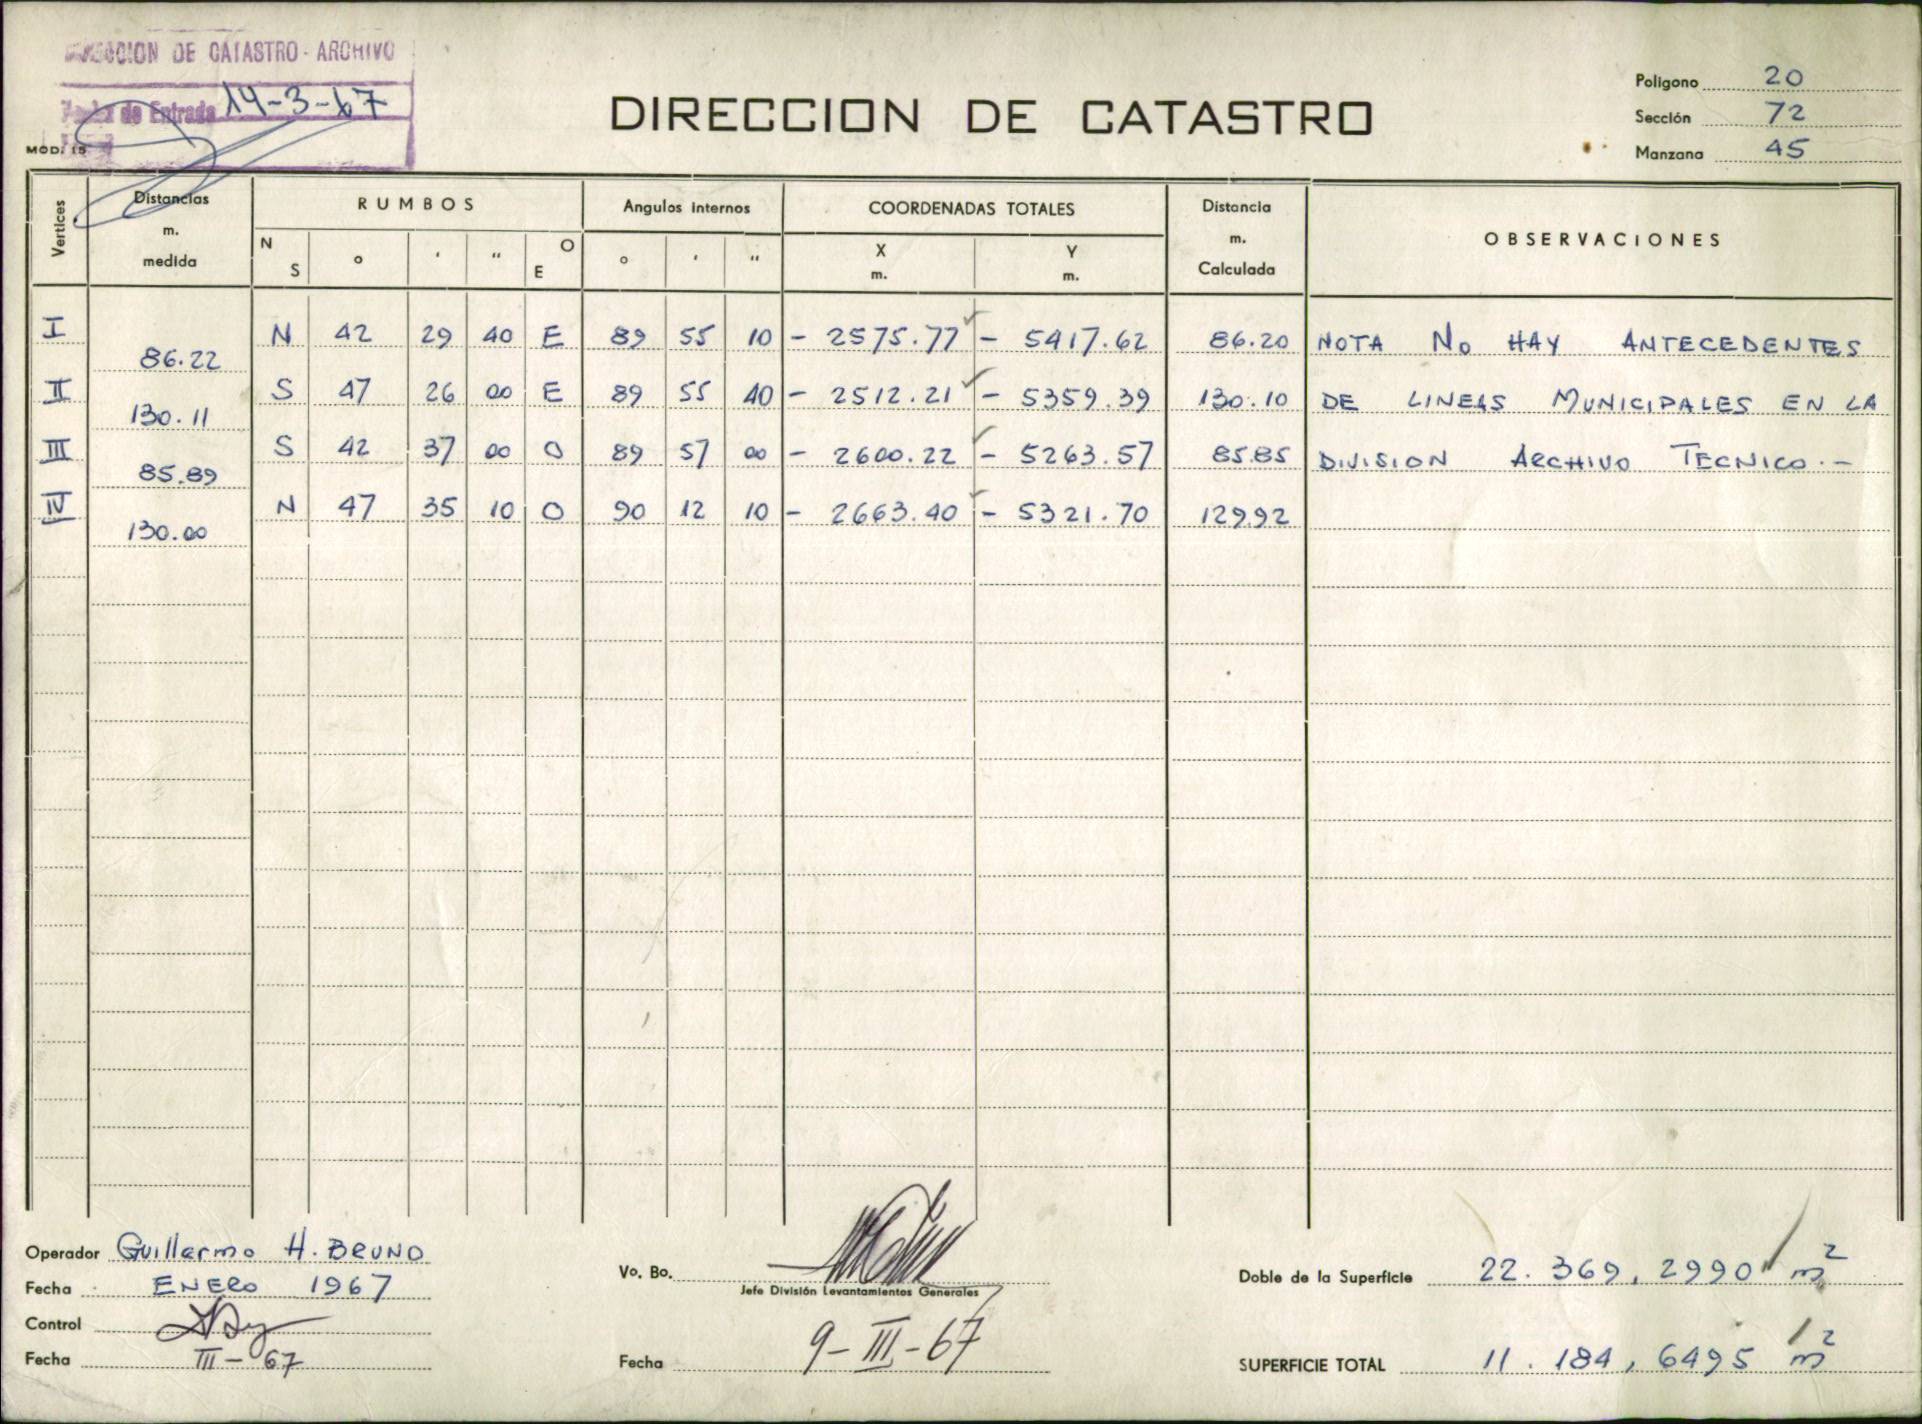 DIRECCION DE CATASTRO - ARCHIVO
Fecha de Entrada 14-3-67
MOD. 15
DIRECCION DE CATASTRO
Poligono 20
Sección 72
Manzana 45
Vertices
Distancias m. medida
RUMBOS
Angulos internos
COORDENADAS TOTALES
Distancia m. Calculada
OBSERVACIONES
N S ° ' " O E
° ' "
X m.
Y m.
I 86.22 N 42 29 40 E 89 55 10 - 2575.77 - 5417.62 86.20 NOTA No HAY ANTECEDENTES
II 130.11 S 47 26 00 E 89 55 40 - 2512.21 - 5359.39 130.10 DE LINEAS MUNICIPALES EN LA
III 85.89 S 42 37 00 O 89 57 00 - 2600.22 - 5263.57 85.85 DIVISION ARCHIVO TECNICO.-
IV 130.00 N 47 35 10 O 90 12 10 - 2663.40 - 5321.70 129.92
Operador Guillermo H. BRUNO
Fecha ENERO 1967
Control
Fecha III-67
Vo. Bo.
Jefe División Levantamientos Generales
Fecha 9-III-67
Doble de la Superficie 22.369,2990 m²
SUPERFICIE TOTAL 11.184,6495 m²